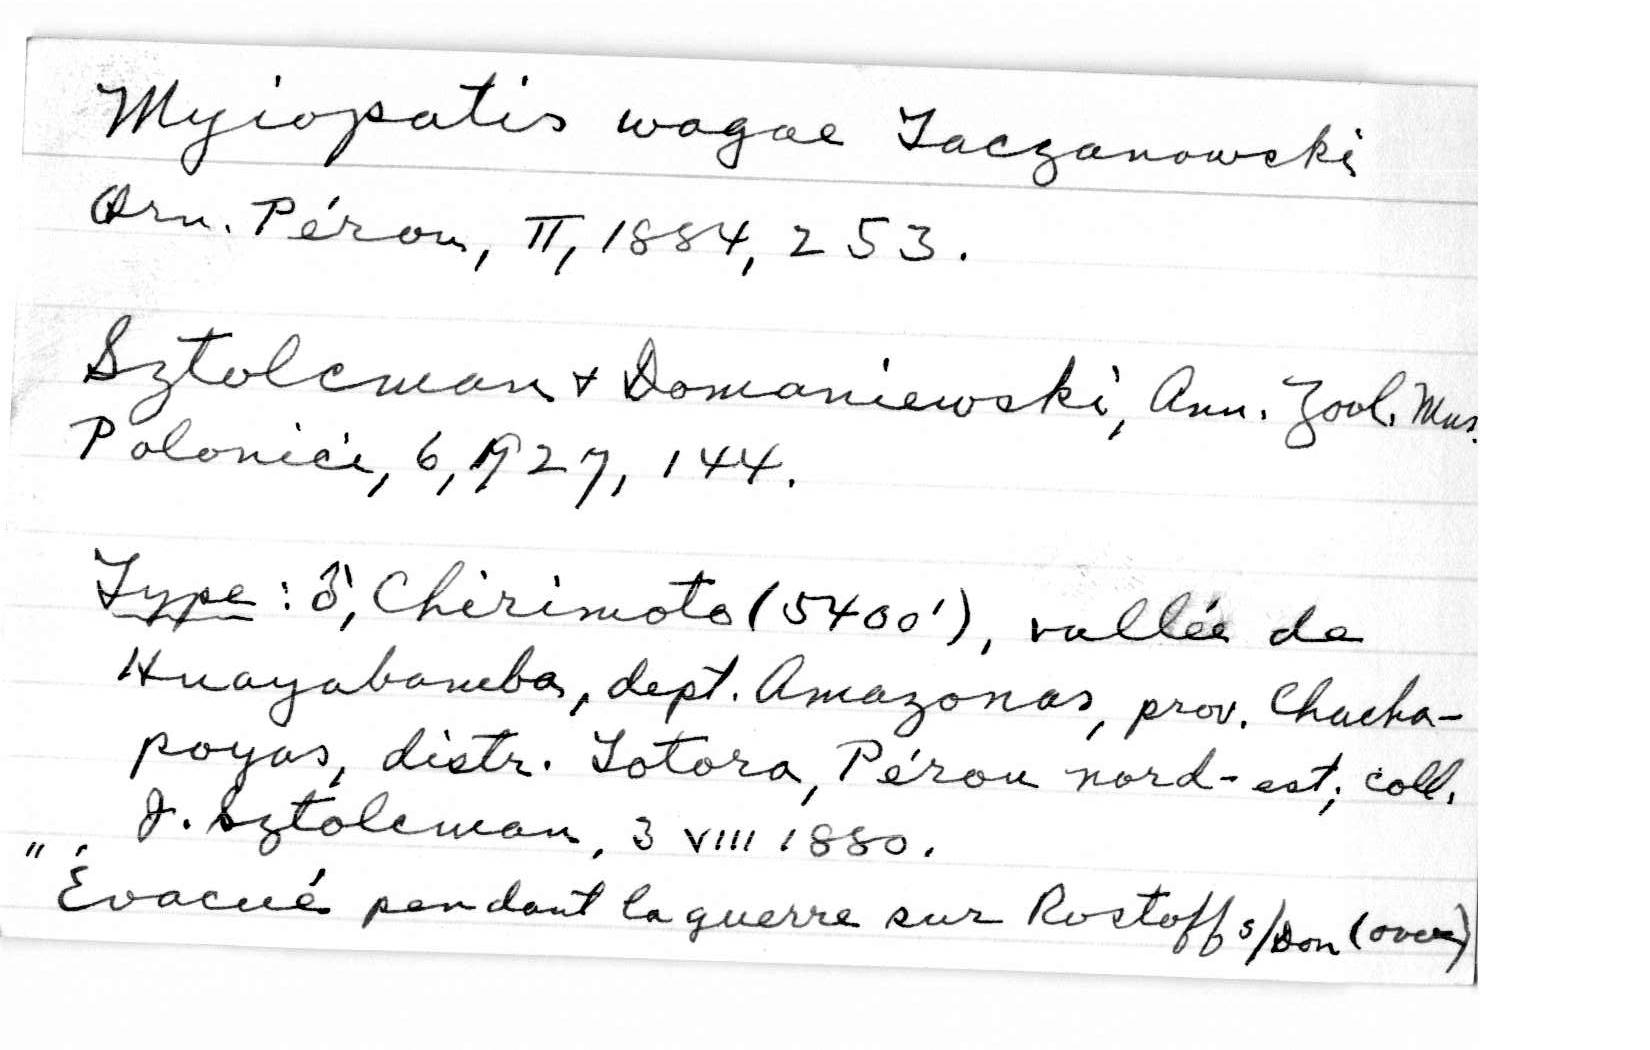 Myiopatis wagae Taczanowski
Orn. Pérou, II, 1884, 253.
Sztolcman + Domaniewski, Ann. Zool. Mus.
Polonici, 6, 1927, 144.
Type : ♂, Chirimoto (5400'), vallée de
Huayabamba, dept. Amazonas, prov. Chacha-
poyas, distr. Totora, Pérou nord-est; coll.
J. Sztolcman, 3 VIII 1880.
"Évacué pendant la guerre sur Rostoff s/Don (over)